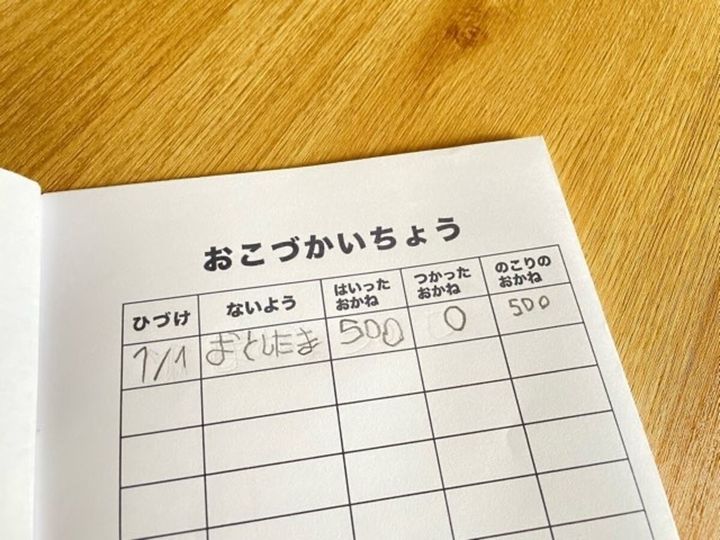 おこづかいちょう
ひづけ ないよう はいった おかね つかった おかね のこりの おかね
1/1 おとしだま 500 0 500